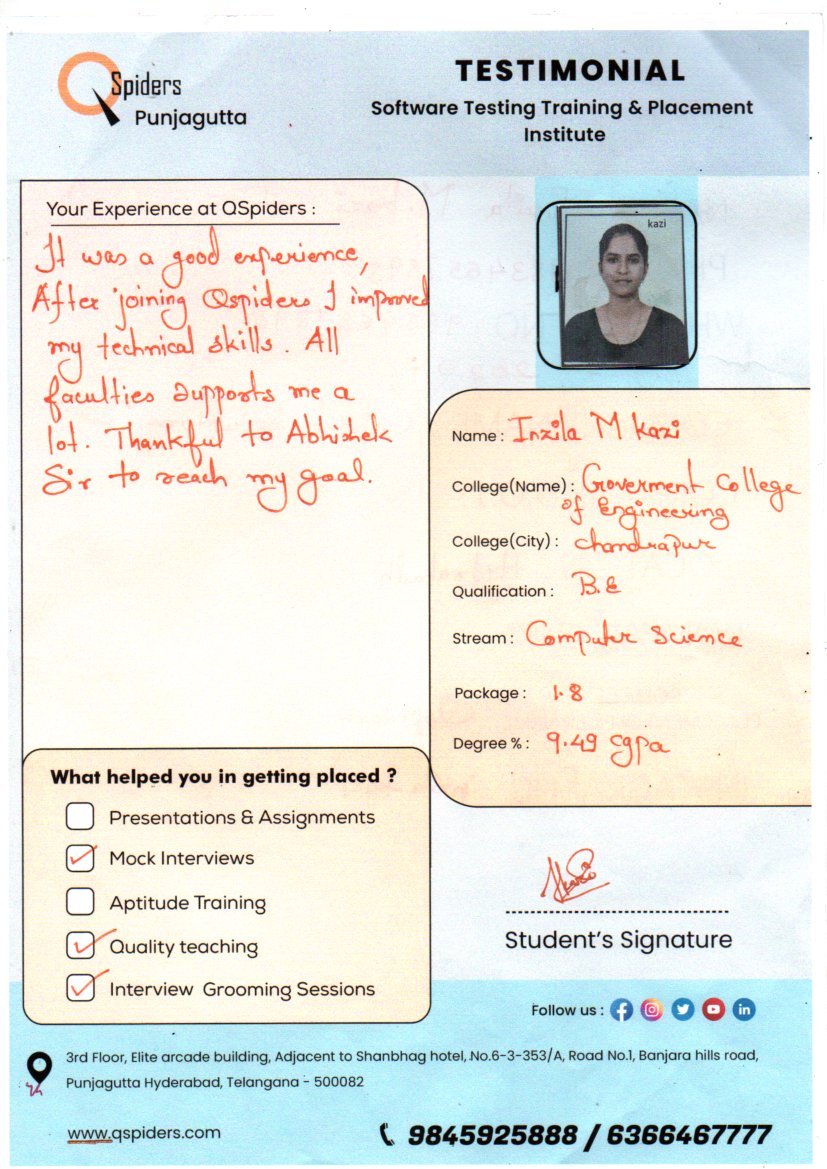 QSpiders
Punjagutta
TESTIMONIAL
Software Testing Training & Placement
Institute
Your Experience at QSpiders :
It was a good experience,
After joining Qspiders I improved
my technical skills. All
faculties supports me a
lot. Thankful to Abhishek
Sir to reach my goal.
kazi
Name : Inzila M kazi
College(Name) : Goverment College
of Engineering
College(City) : chandrapur
Qualification : B.E
Stream : Computer Science
Package : 1.8
Degree % : 9.49 cgpa
What helped you in getting placed ?
Presentations & Assignments
Mock Interviews
Aptitude Training
Quality teaching
Interview Grooming Sessions
Student's Signature
Follow us :
3rd Floor, Elite arcade building, Adjacent to Shanbhag hotel, No.6-3-353/A, Road No.1, Banjara hills road,
Punjagutta Hyderabad, Telangana - 500082
www.qspiders.com
9845925888 / 6366467777